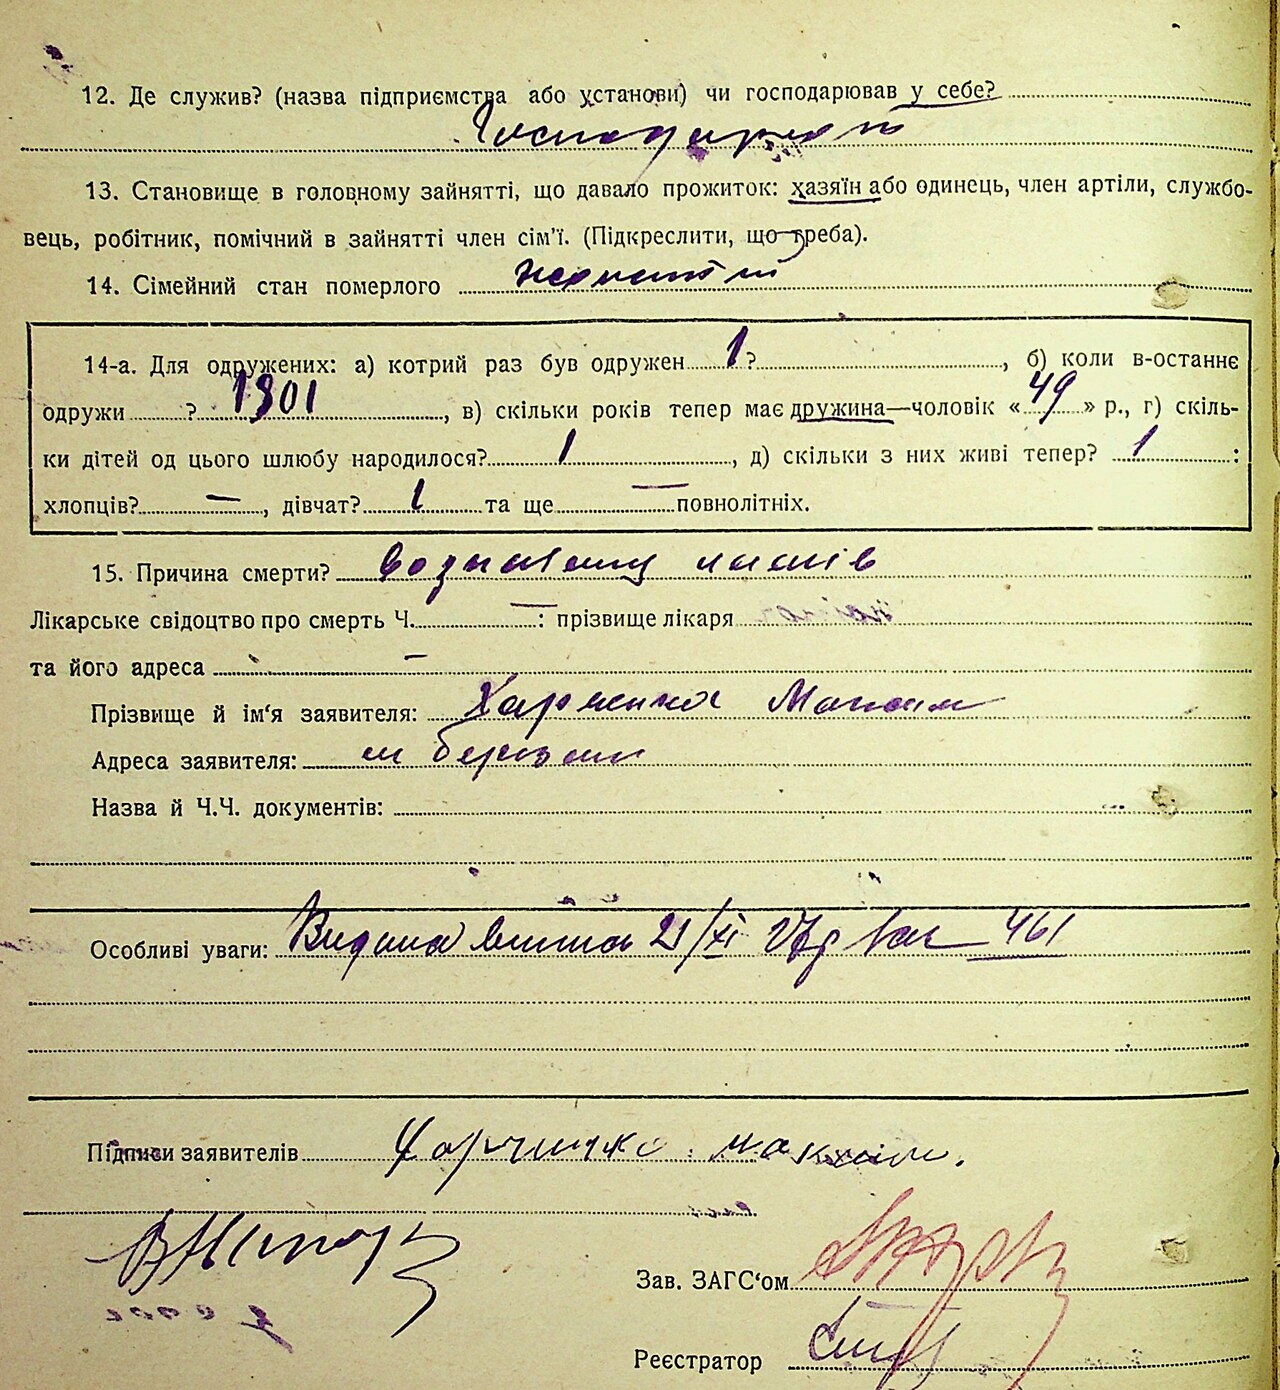 12. Де служив? (назва підприємства або установи) чи господарював у себе?
Господарюв
13. Становище в головному зайнятті, що давало прожиток: хазяїн або одинець, член артіли, службо-
вець, робітник, помічний в зайнятті член сім'ї. (Підкреслити, що треба).
14. Сімейний стан померлого жонатий
14-а. Для одружених: а) котрий раз був одружен 1 ?, б) коли в-останнє
одружи ? 1901, в) скільки років тепер має дружина—чоловік «49» р., г) скіль-
ки дітей од цього шлюбу народилося? 1, д) скільки з них живі тепер? 1 :
хлопців? —, дівчат? 1 та ще — повнолітніх.
15. Причина смерти?
Лікарське свідоцтво про смерть Ч. — : прізвище лікаря
та його адреса —
Прізвище й ім'я заявителя: Харченко Максим
Адреса заявителя:
Назва й Ч.Ч. документів:
Особливі уваги: Видана 21/XI 461
Підписи заявителів Харченко Максим.
Зав. ЗАГС'ом
Реєстратор